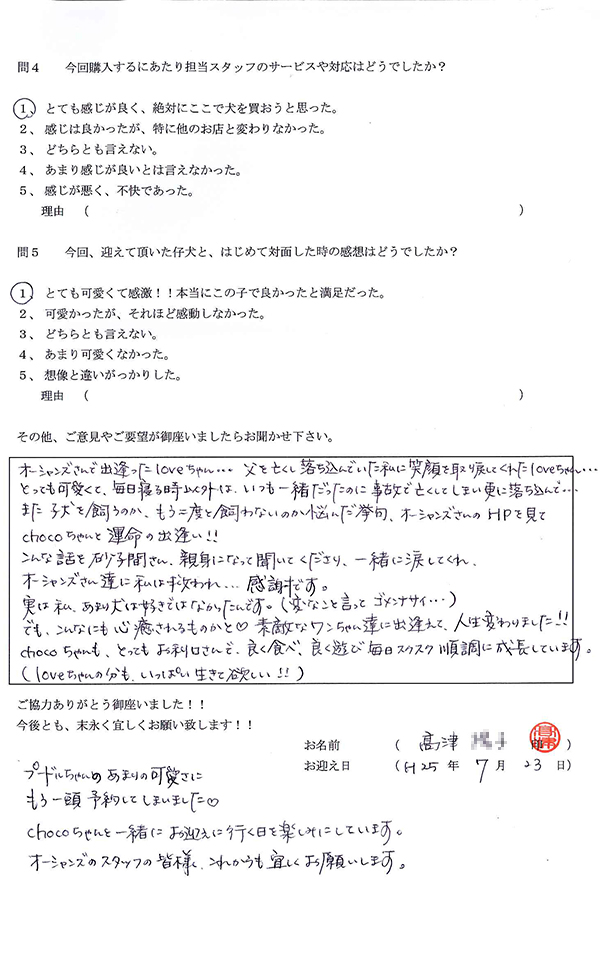 問4　今回購入するにあたり担当スタッフのサービスや対応はどうでしたか？
1、とても感じが良く、絶対にここで犬を買おうと思った。
2、感じは良かったが、特に他のお店と変わりなかった。
3、どちらとも言えない。
4、あまり感じが良いとは言えなかった。
5、感じが悪く、不快であった。
理由　（　　　）
問5　今回、迎えて頂いた仔犬と、はじめて対面した時の感想はどうでしたか？
1、とても可愛くて感激！！本当にこの子で良かったと満足だった。
2、可愛かったが、それほど感動しなかった。
3、どちらとも言えない。
4、あまり可愛くなかった。
5、想像と違いがっかりした。
理由　（　　　）
その他、ご意見やご要望が御座いましたらお聞かせ下さい。
オーシャンズさんで出逢ったloveちゃん… 父を亡くし落ち込んでいた私に笑顔を取り戻してくれたloveちゃん…
とっても可愛くて、毎日寝る時以外は、いつも一緒だったのに事故で亡くしてしまい更に落ち込んで…
また子犬を飼うのか、もう二度と飼わないのか悩んだ挙句、オーシャンズさんのHPを見て
chocoちゃんと運命の出逢い!!
こんな話を砂子間さん、親身になって聞いてくださり、一緒に涙してくれ、
オーシャンズさん達に私は救われ… 感謝です。
実は私、あまり犬は好きではなかったんです。（変なこと言ってゴメンナサイ…）
でも、こんなにも心癒されるものかと♡ 素敵なワンちゃん達に出逢えて、人生変わりました!!
chocoちゃんも、とってもお利口さんで、良く食べ、良く遊び毎日スクスク順調に成長しています。
（loveちゃんの分も、いっぱい生きて欲しい!!）
ご協力ありがとう御座いました！！
今後とも、末永く宜しくお願い致します！！
お名前　（　髙津　　　印　）
お迎え日　（H25年 7月 23日）
プードルちゃんのあまりの可愛さに
もう一頭予約してしまいました♡
chocoちゃんと一緒にお迎えに行く日を楽しみにしています。
オーシャンズのスタッフの皆様、これからも宜しくお願いします。